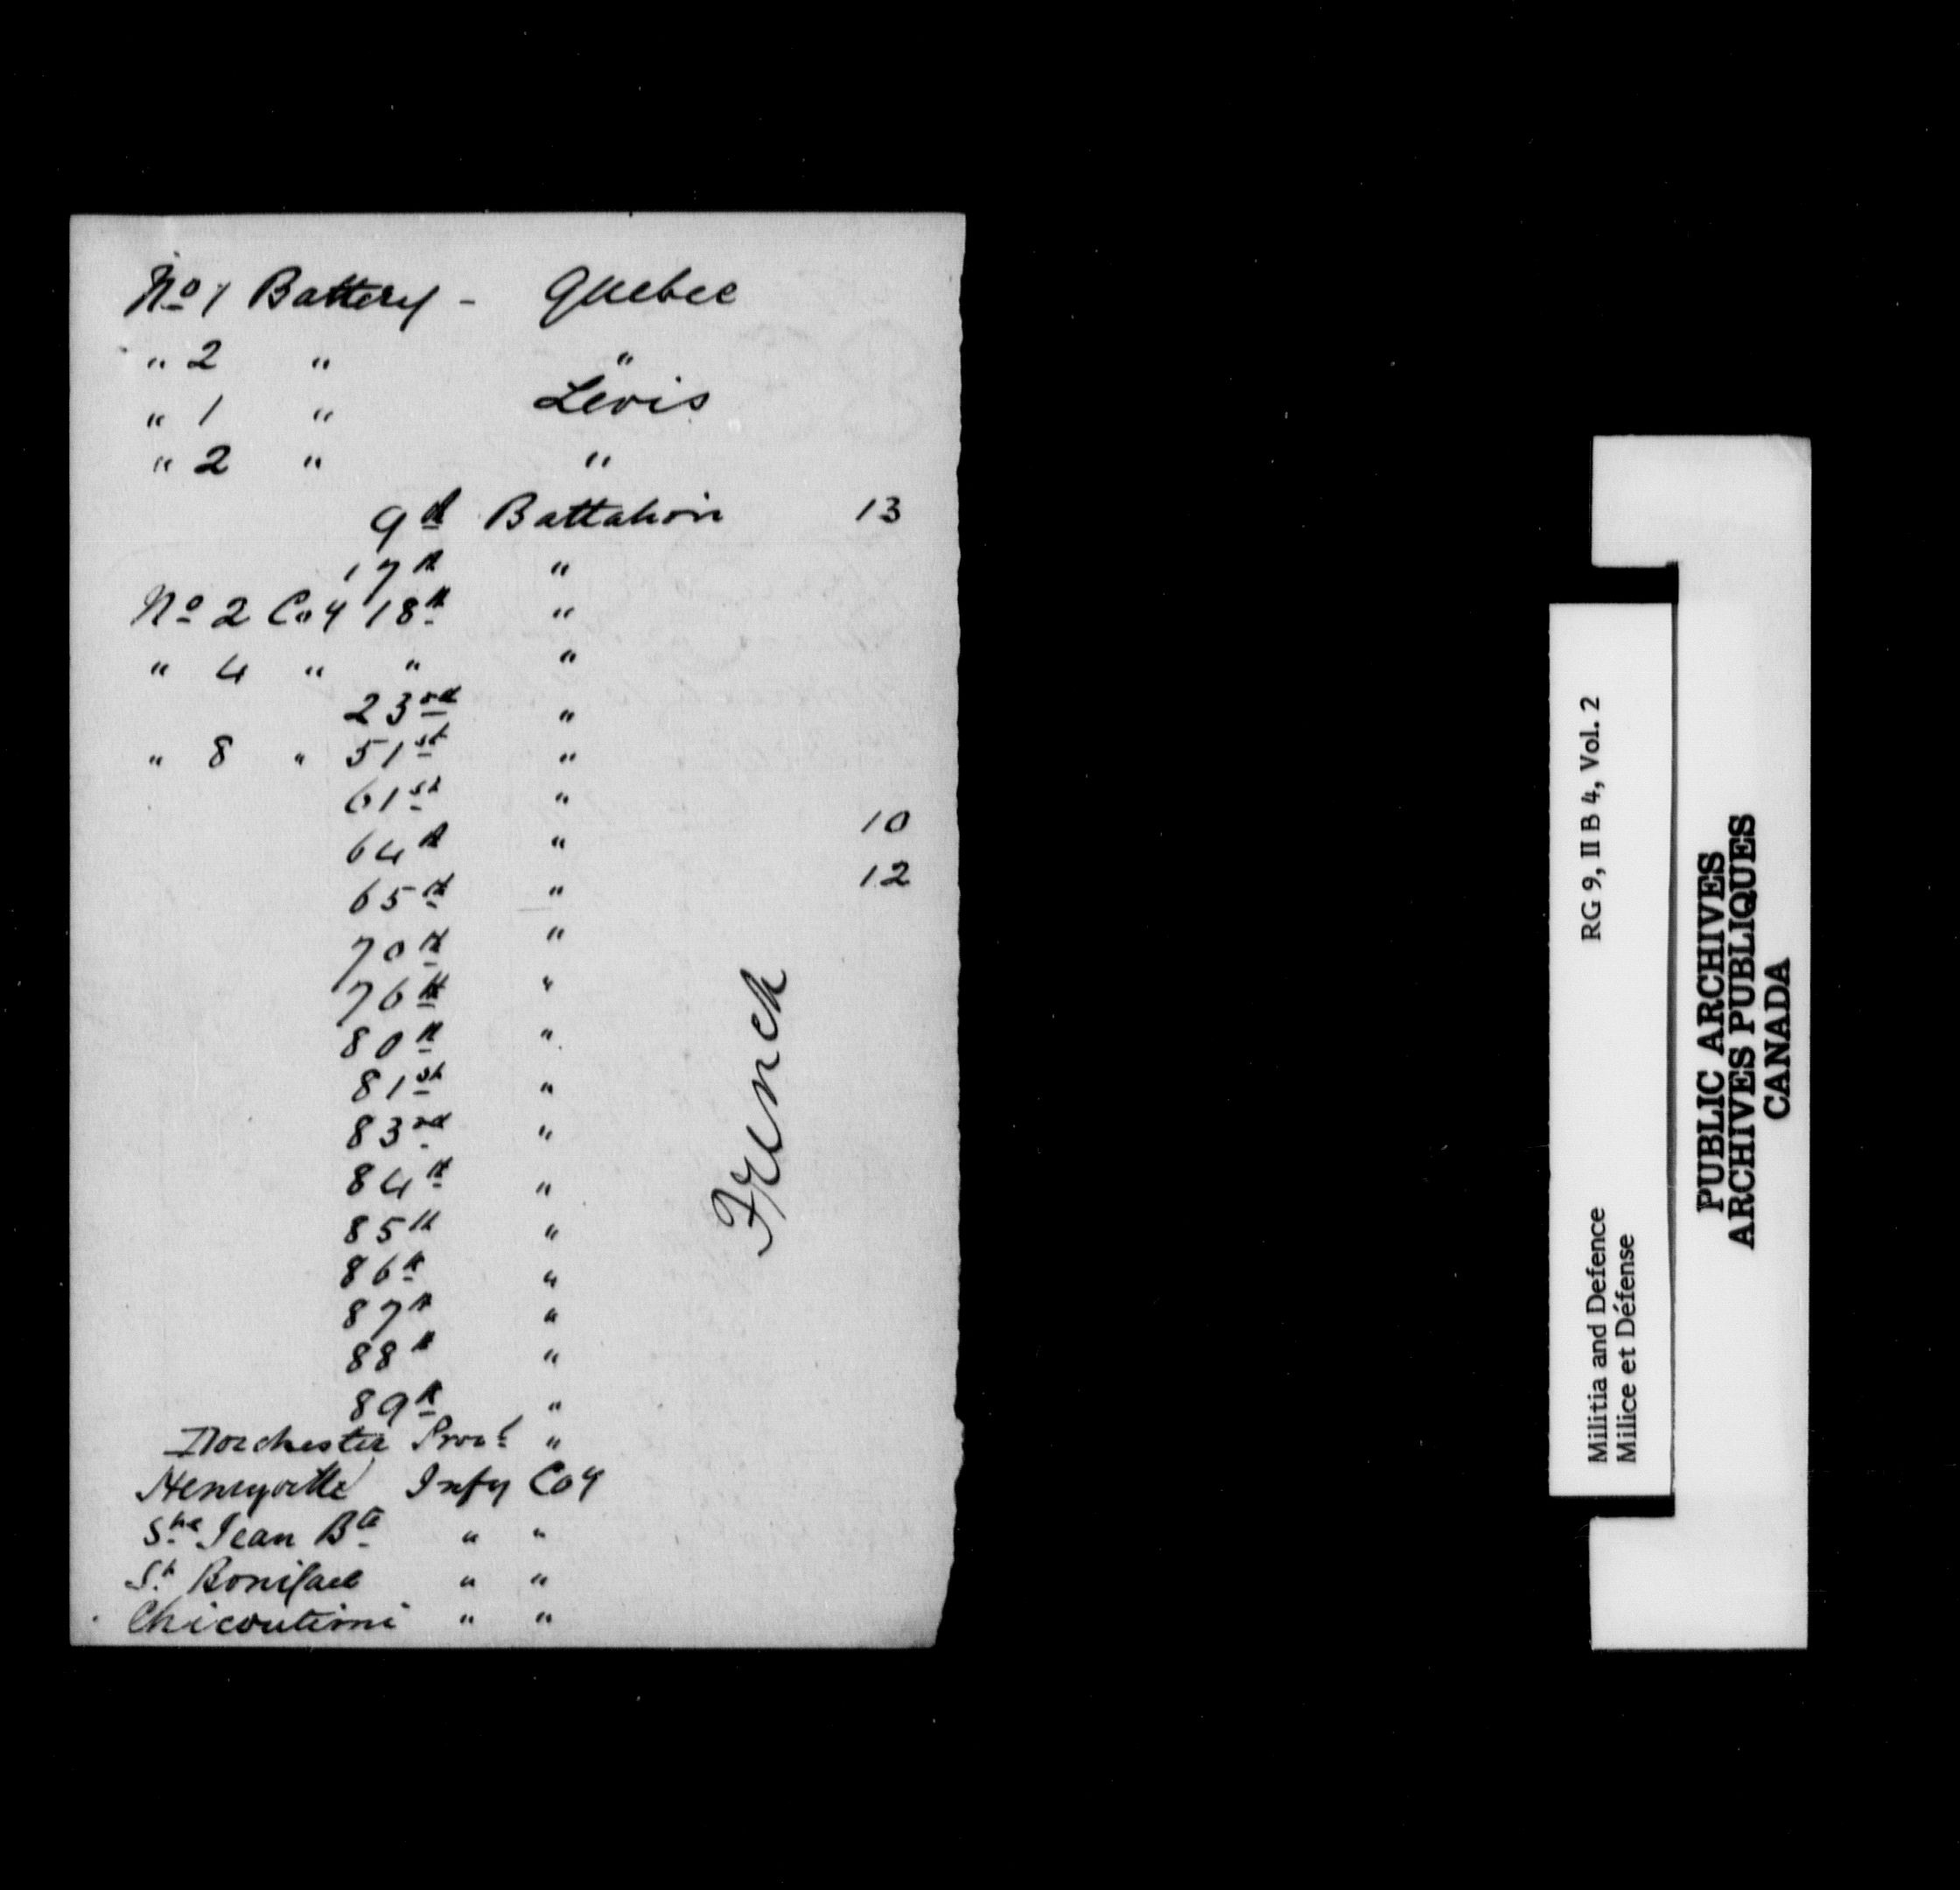 No 1 Battery - Quebec
" 2 " "
" 1 " Levis
" 2 " "
9th Battalion 13
17th "
No 2 Coy 18th "
" 4 " " "
23rd "
" 8 " 51st "
61st "
64th " 10
65th " 12
70th "
76th "
80th "
81st "
83rd "
84th "
85th "
86th "
87th "
88th "
89th "
Dorchester Provl "
Henryville Infy Coy
Ste Jean Bte " "
St Boniface " "
Chicoutimi " "
French
Militia and Defence RG 9, II B 4, Vol. 2
Milice et Défense
PUBLIC ARCHIVES
ARCHIVES PUBLIQUES
CANADA